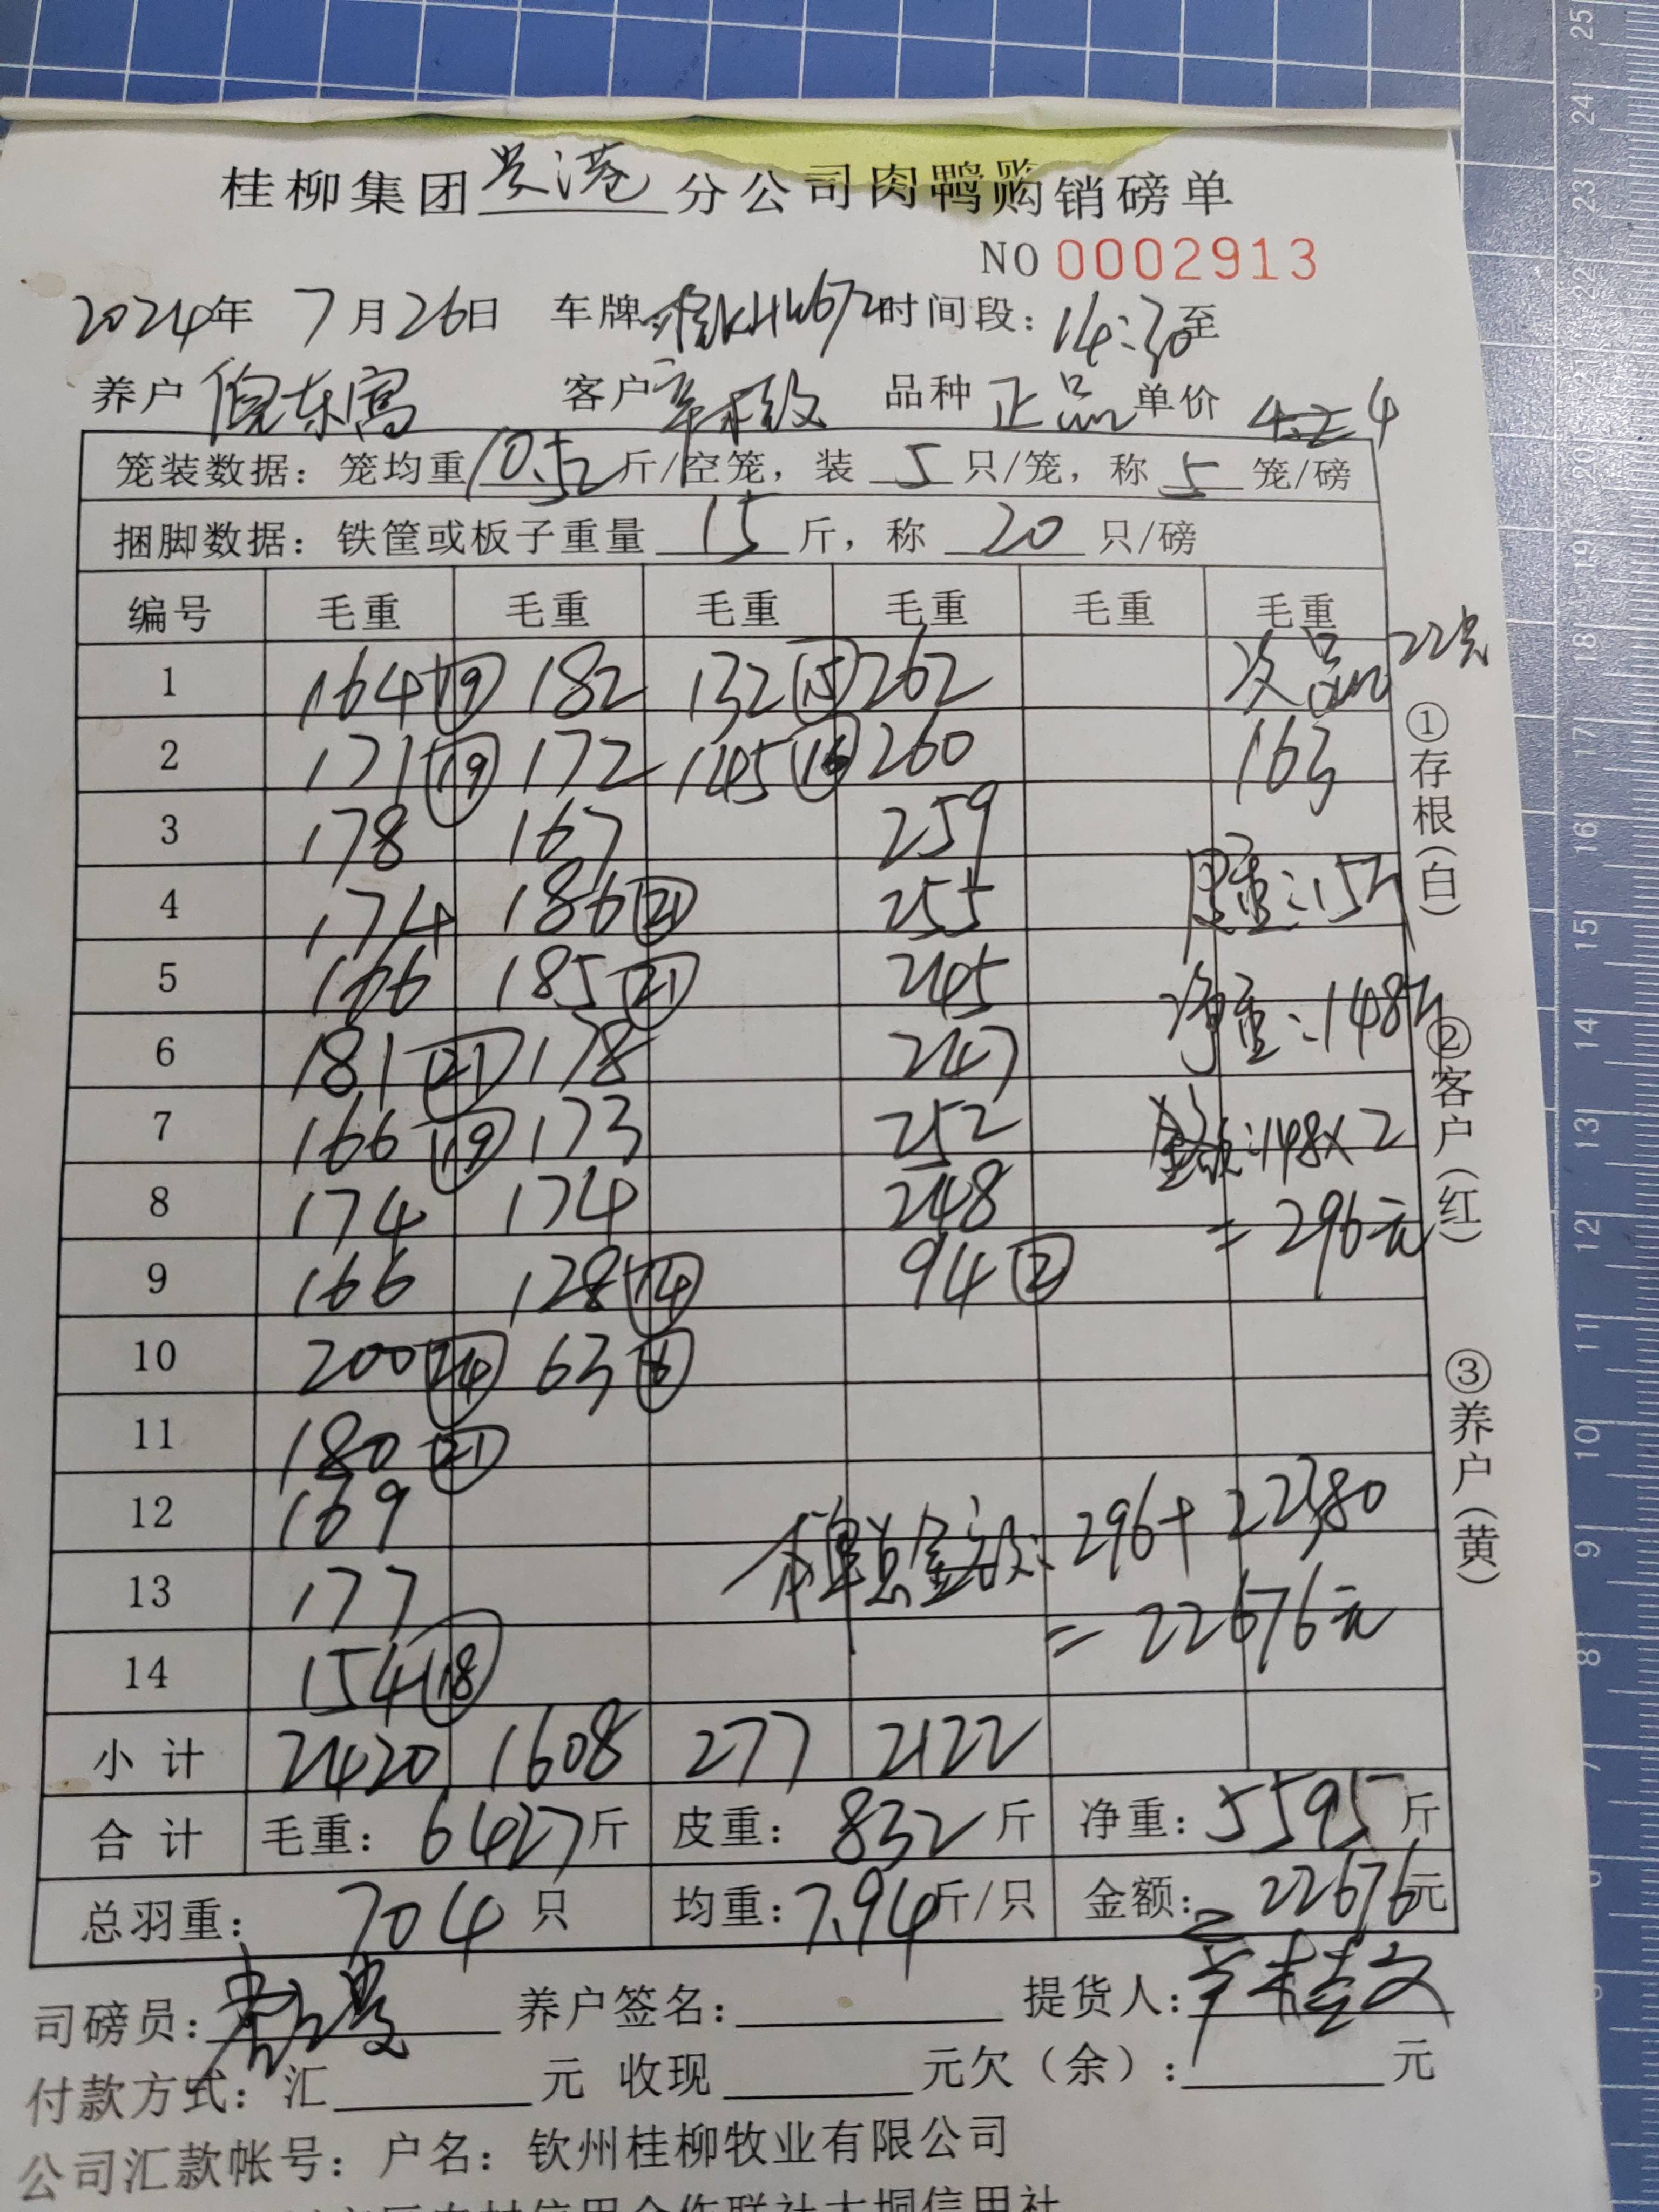 桂柳集团 分公司肉鸭购销磅单
NO 0002913
2024年 7月26日 车牌 时间段：14:30至
养户 客户 品种 正品 单价 4
笼装数据：笼均重10.52斤/空笼，装 5 只/笼，称 5 笼/磅
捆脚数据：铁筐或板子重量 15 斤，称 20 只/磅
编号 毛重 毛重 毛重 毛重 毛重 毛重
1 164 ⑲ 182 132 ⑮ 262 次品 22只
2 171 ⑲ 172 145 ⑯ 260 163
3 178 167 259
4 174 186 ㉑ 255 皮重：15斤
5 166 185 ㉑ 245 净重：148斤
6 181 ㉑ 178 247
7 166 ⑲ 173 252 金额：148×2
8 174 174 248 =296元
9 166 128 ⑭ 94 ②
10 200 ㉔ 63 ⑥
11 180 ㉑
12 169 本单总金额：296+22380
13 177 =22676元
14 154 ⑱
小计 2420 1608 277 2122
合计 毛重：6427斤 皮重：832斤 净重：5595斤
总羽重：704 只 均重：7.94斤/只 金额：22676元
司磅员： 养户签名： 提货人：
付款方式：汇 元 收现 元欠（余）： 元
公司汇款帐号：户名：钦州桂柳牧业有限公司
①存根（白）
②客户（红）
③养户（黄）
25
24
23
22
21
20
19
18
17
16
15
14
13
12
11
10
9
8
7
6